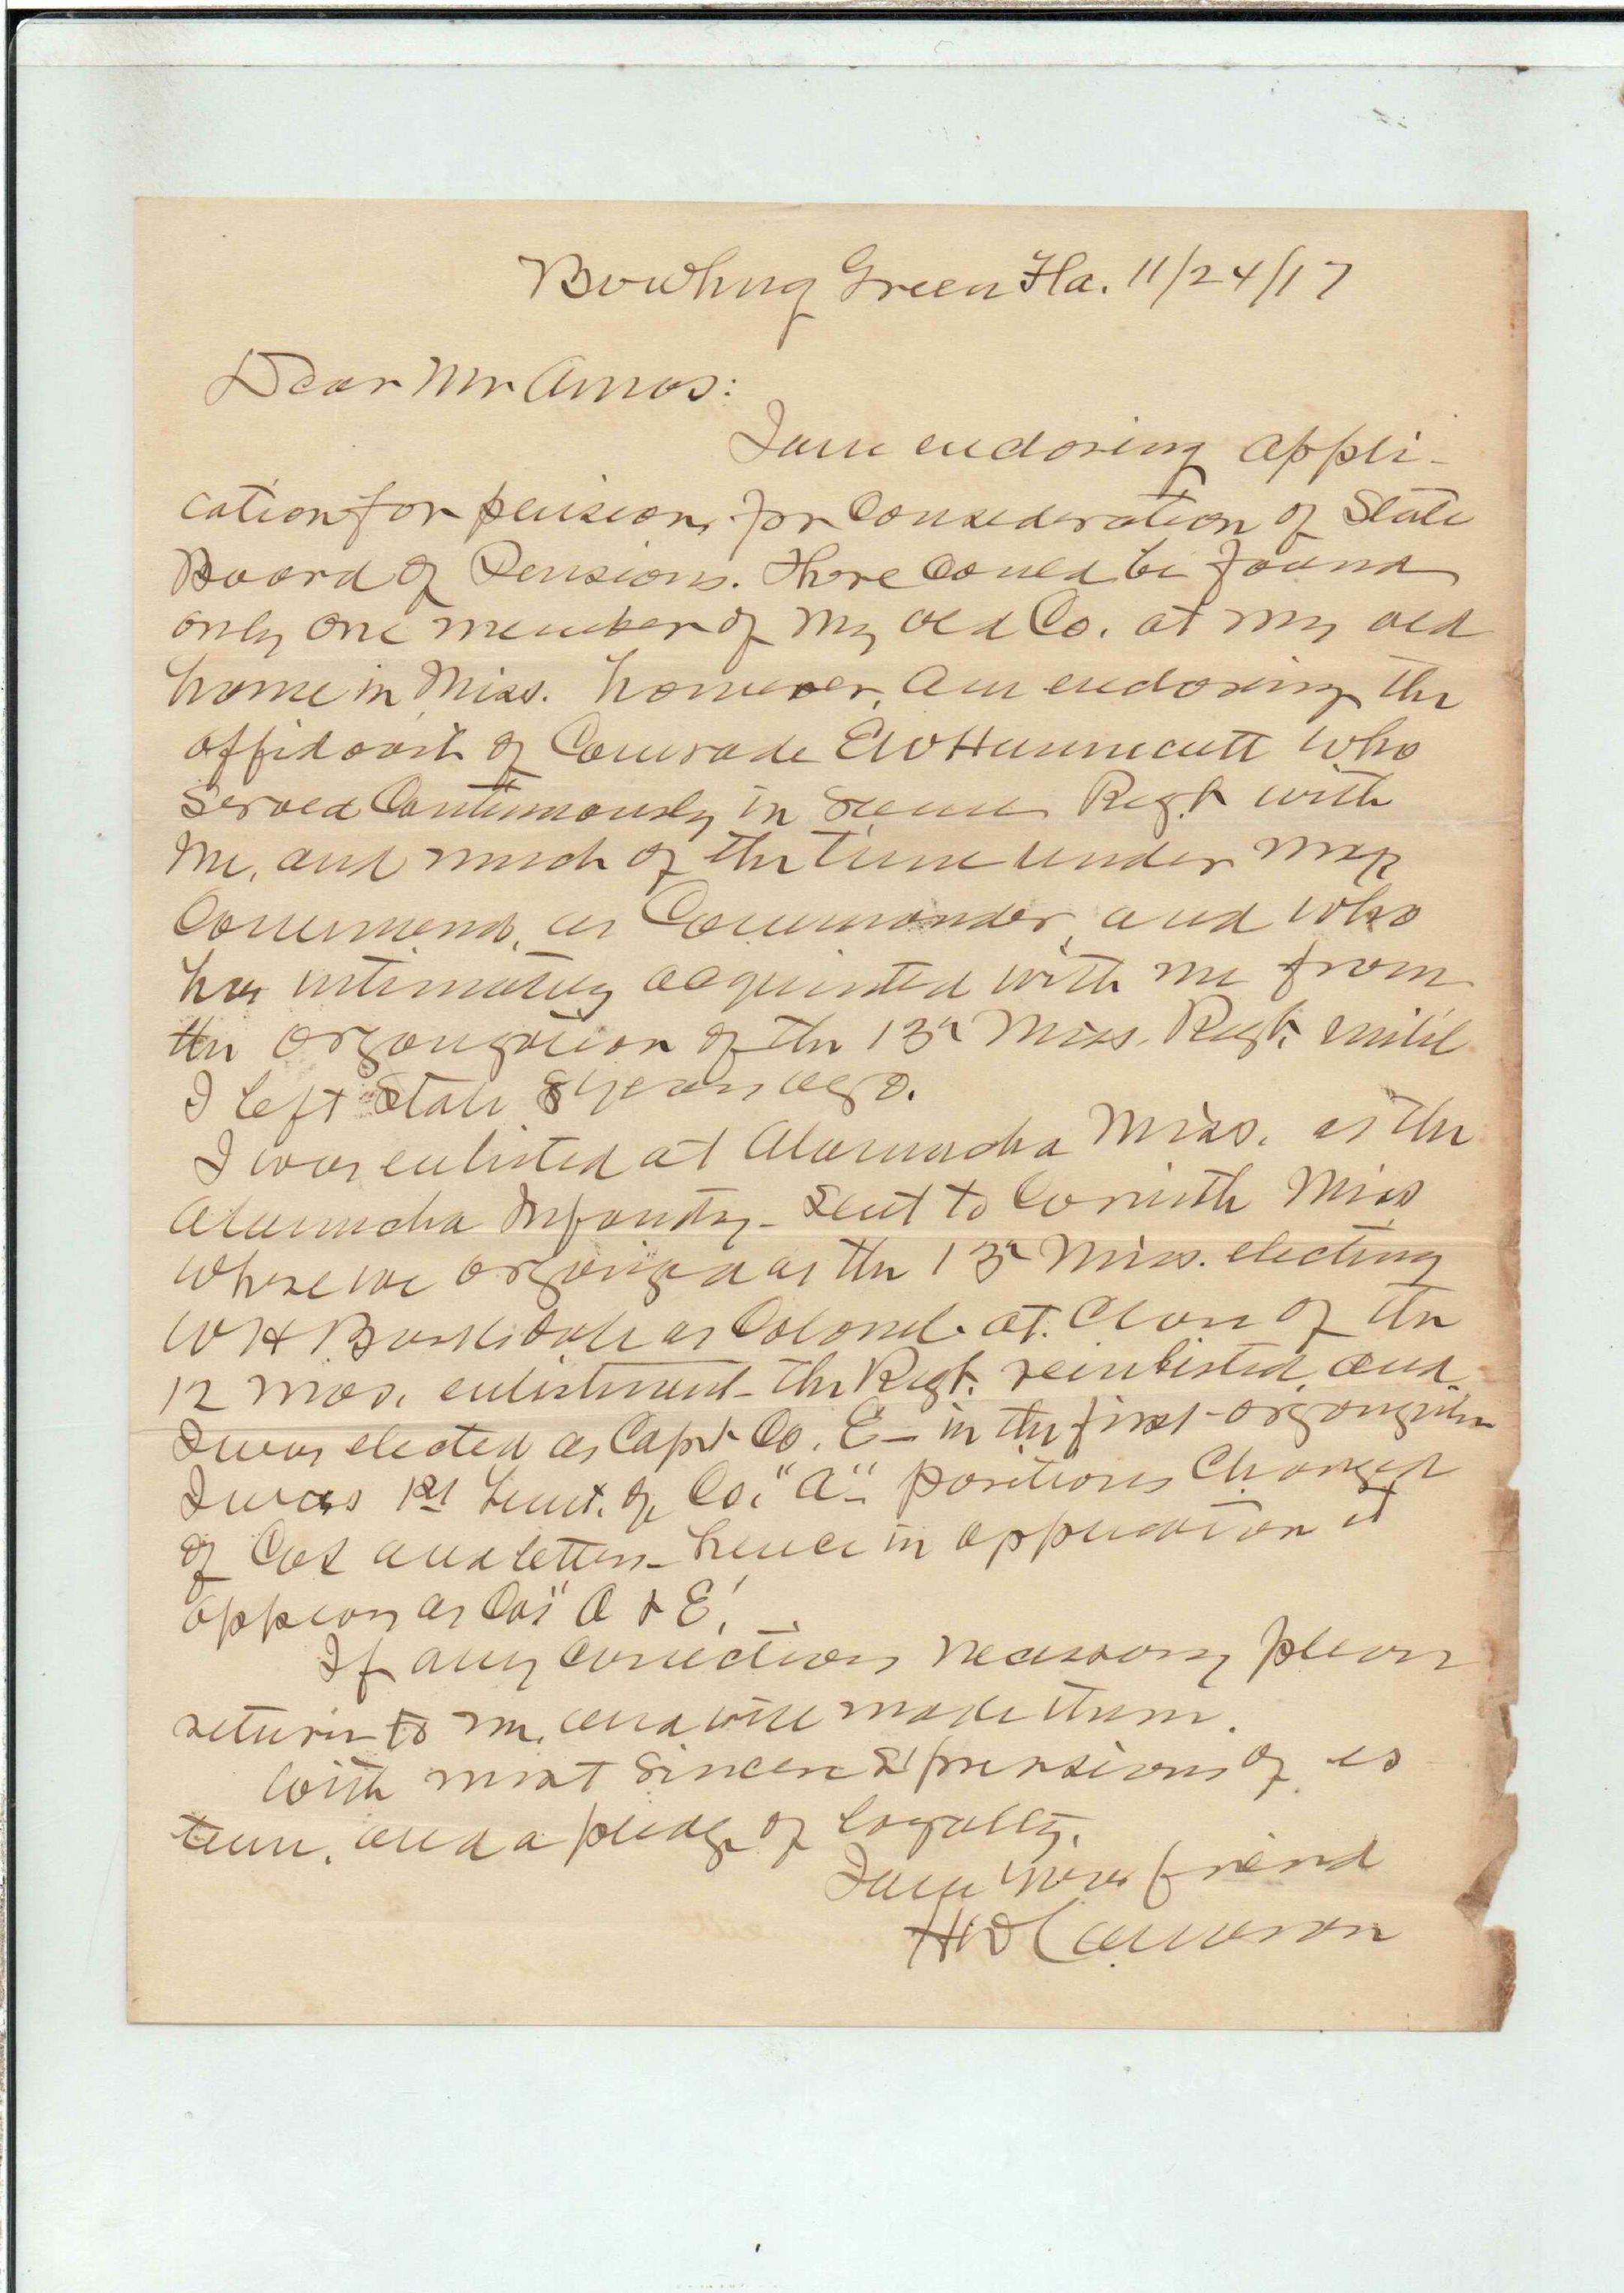 Bowling Green Fla. 11/24/17
Dear Mr Amos:
I am enclosing appli-
cation for pension, for consideration of State
Board of Pensions. There could be found
only one member of my old Co. at my old
home in Miss. however, am enclosing the
affidavit of Comrade EW Hunnicutt who
served continuously in same Regt with
me, and much of the time under my
command, as Commander, and who
has intimately acquinted with me from
the organization of the 13th Miss. Regt. until
I left State 8 years ago.
I was enlisted at Alamucha Miss. as the
Alamucha Infantry - sent to Corinth Miss
where we organized as the 13th Miss. electing
WH Barksdale as Colonel. at close of the
12 mos. enlistment - the Regt. reinlisted, and
I was elected as Capt Co. E - in the first organization
I was 1st Lieut. of Co. "A" positions changed
of Cos and letters - hence in application it
appears as Cos "A & E"
If any corrections necessary please
return to me, and will made them.
With most sincere expressions of es
teem, and a pledge of loyalty,
I am your friend
HD Cameron